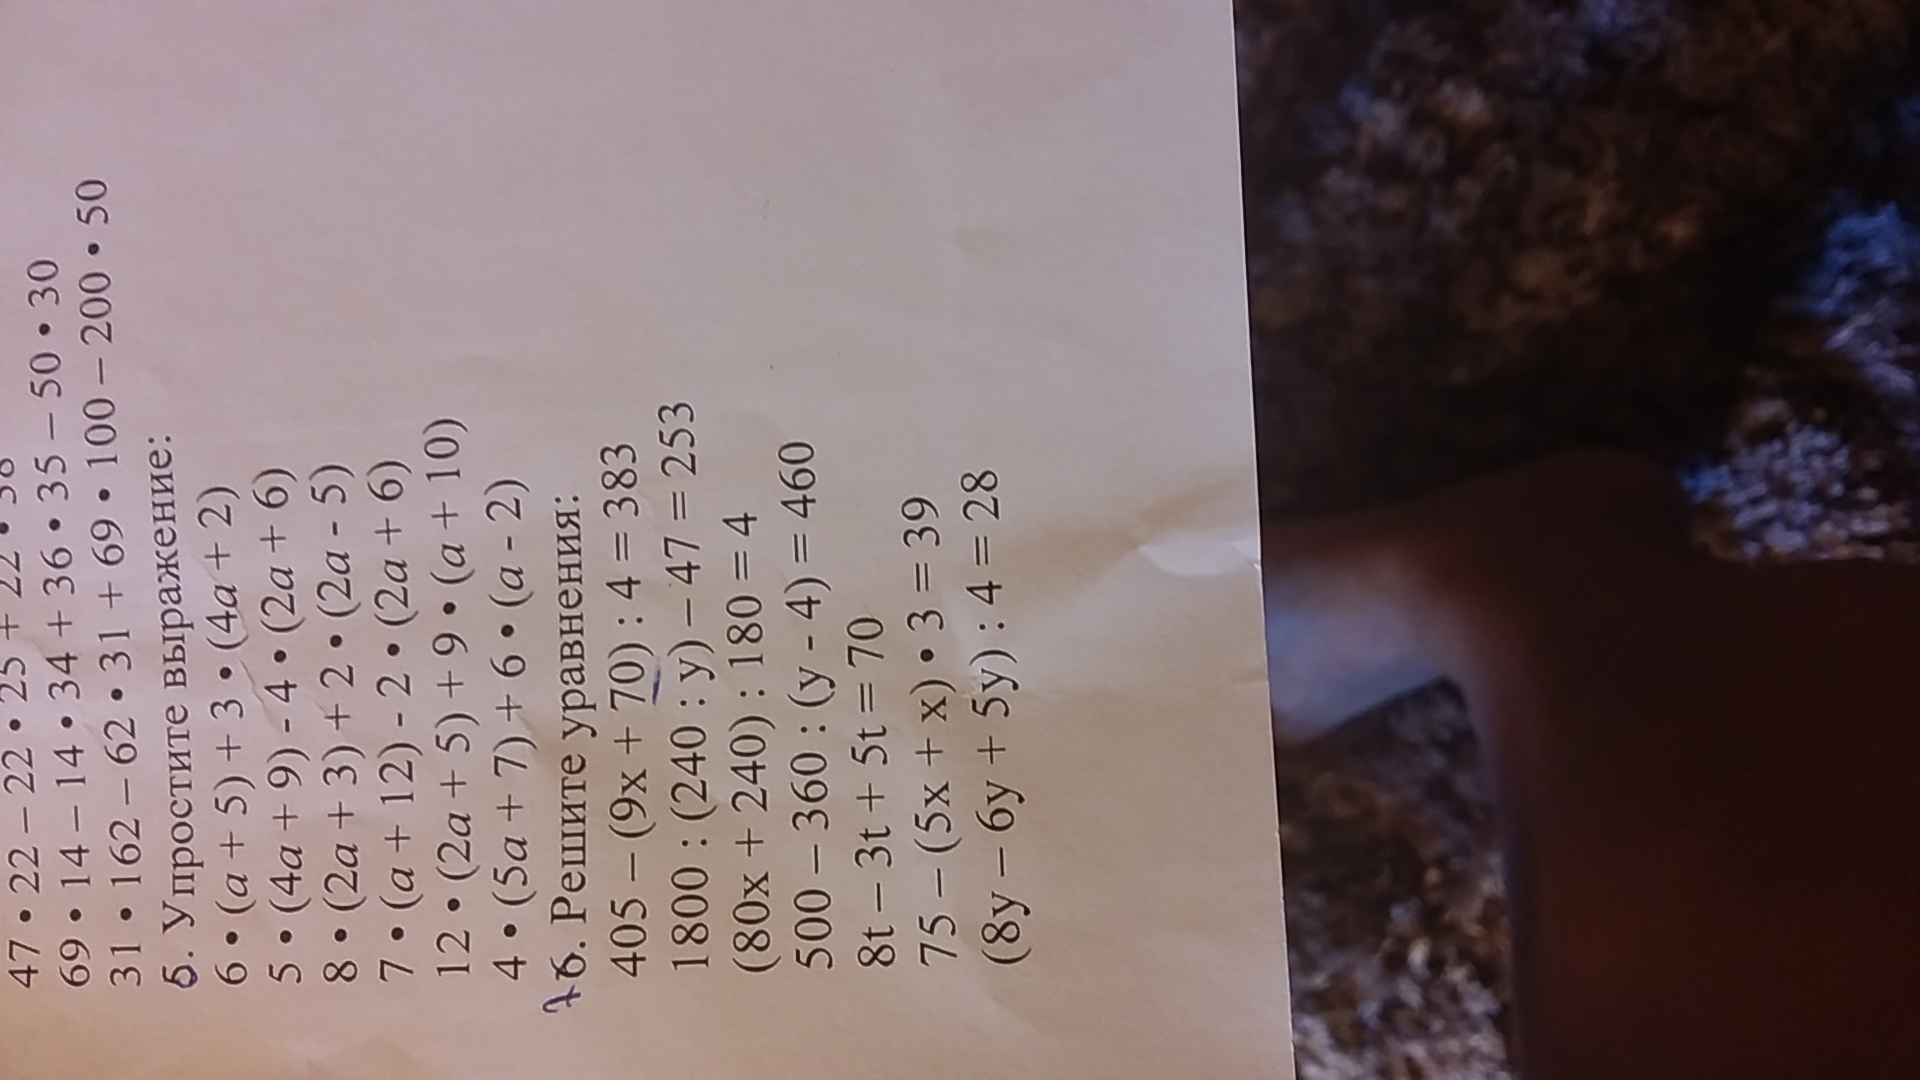 47 • 22 – 22 • 25 + 22 • 38
69 • 14 – 14 • 34 + 36 • 35 – 50 • 30
31 • 162 – 62 • 31 + 69 • 100 – 200 • 50
5. Упростите выражение:
6 • (a + 5) + 3 • (4a + 2)
5 • (4a + 9) - 4 • (2a + 6)
8 • (2a + 3) + 2 • (2a - 5)
7 • (a + 12) - 2 • (2a + 6)
12 • (2a + 5) + 9 • (a + 10)
4 • (5a + 7) + 6 • (a - 2)
7 6. Решите уравнения:
405 – (9x + 70) : 4 = 383
1800 : (240 : y) – 47 = 253
(80x + 240) : 180 = 4
500 – 360 : (y - 4) = 460
8t – 3t + 5t = 70
75 – (5x + x) • 3 = 39
(8y – 6y + 5y) : 4 = 28